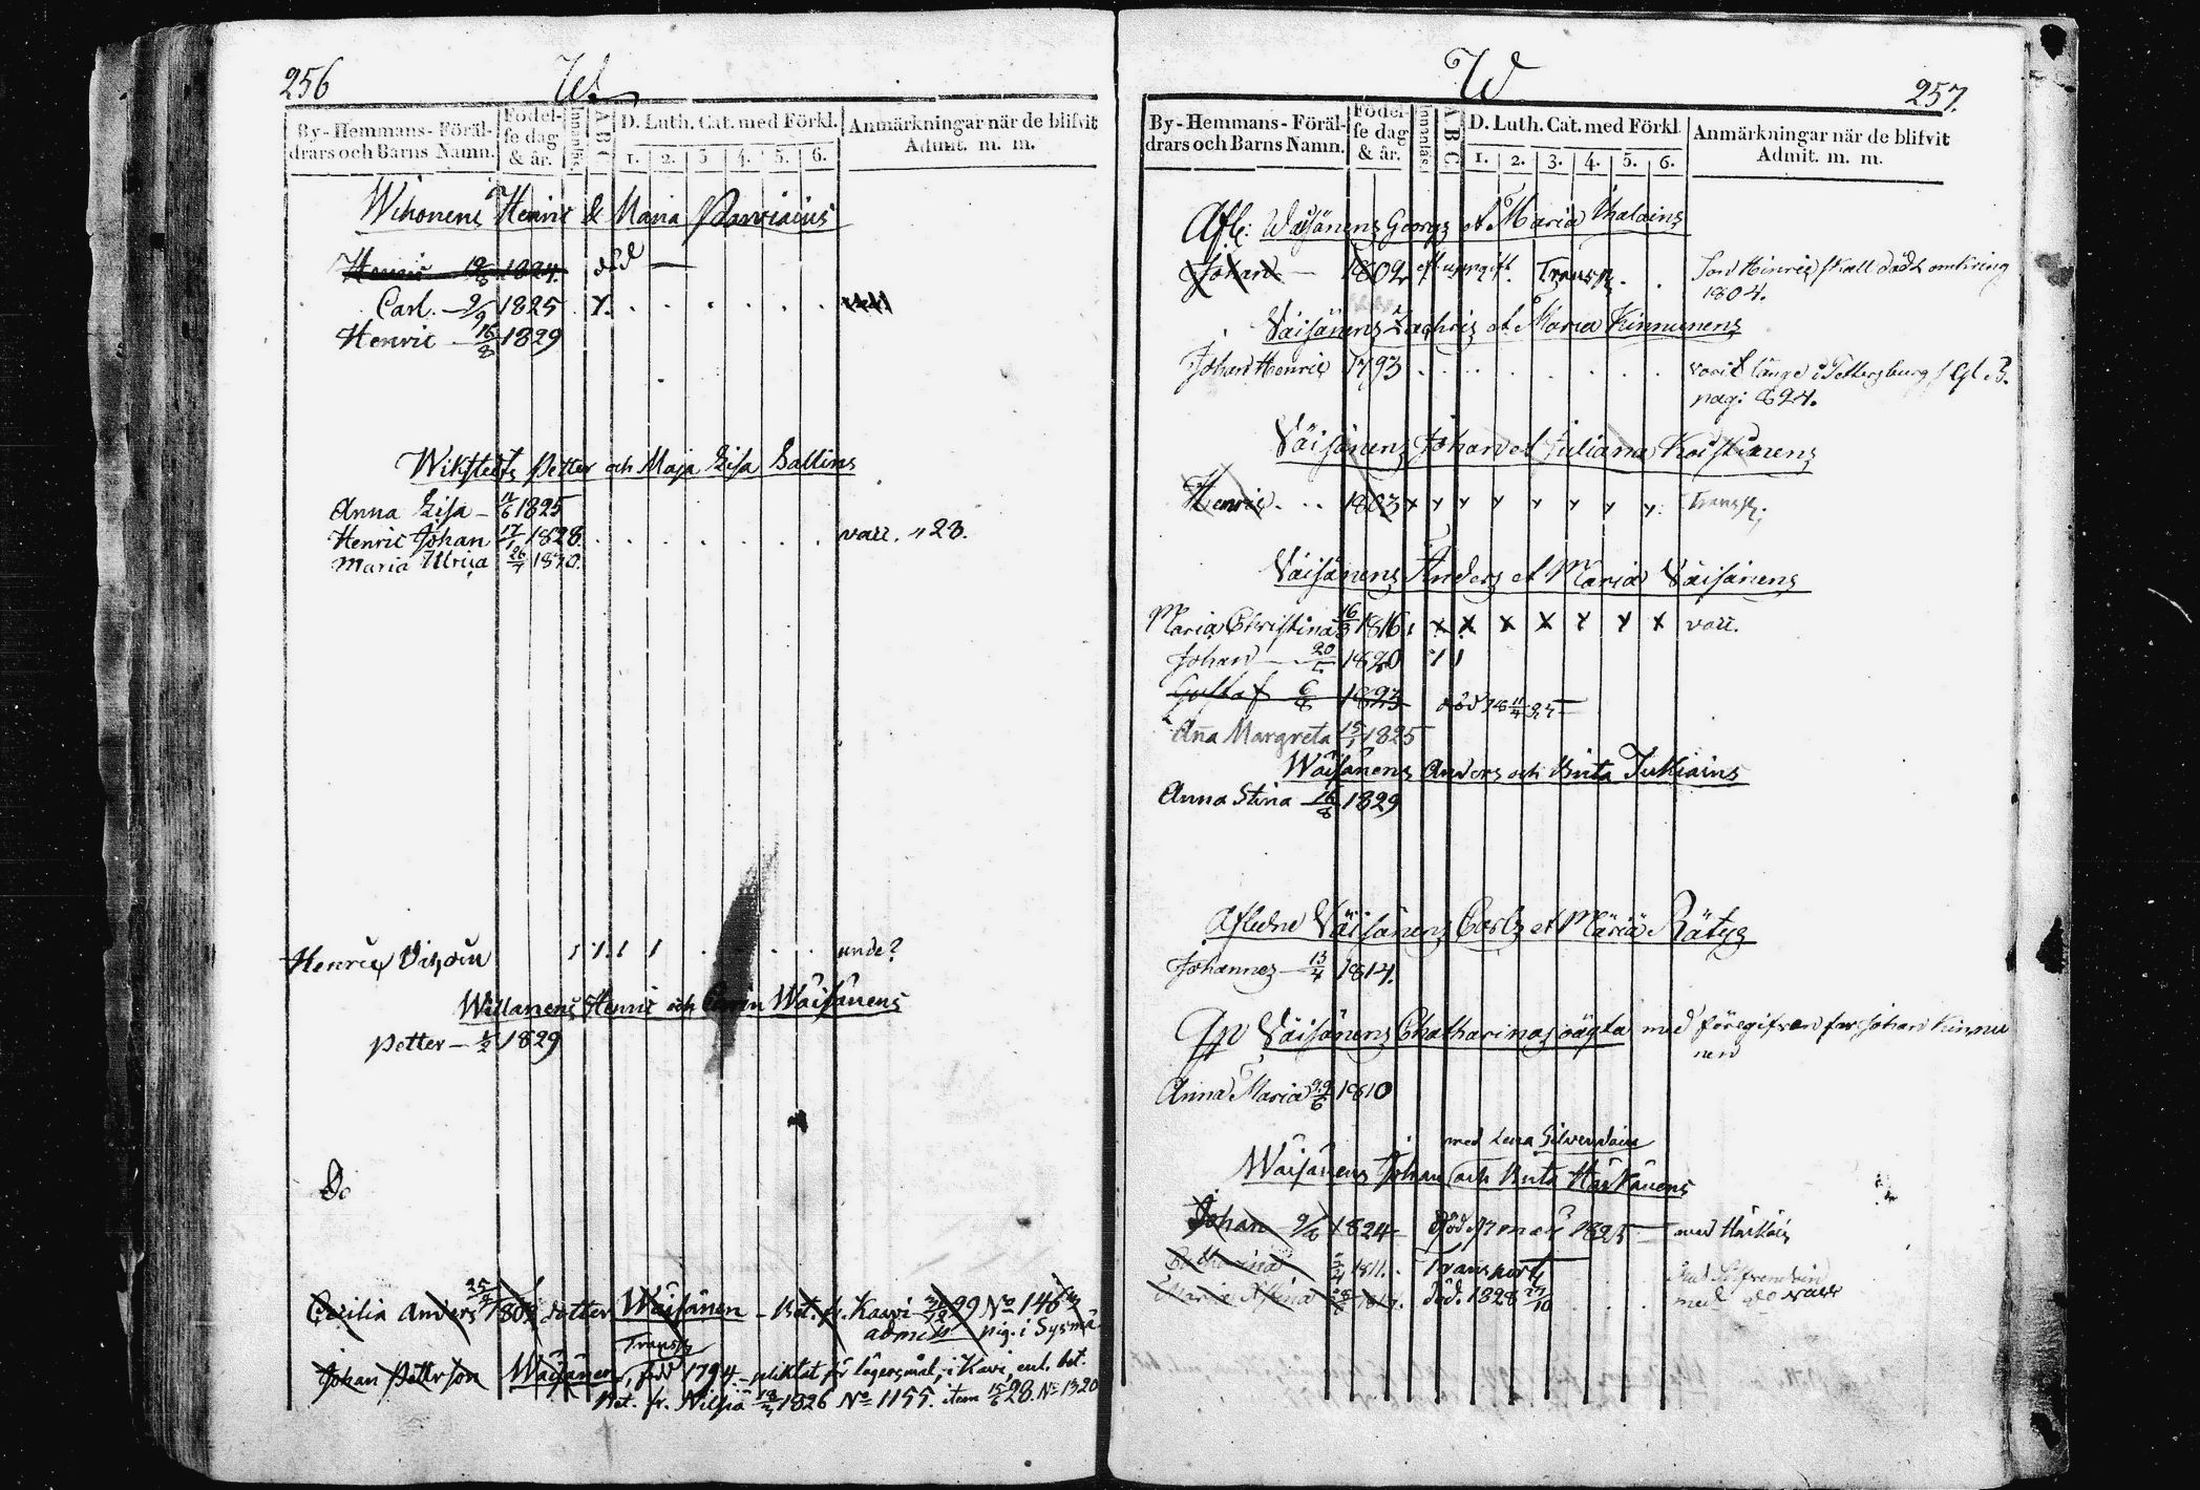 256
W
By-Hemmans-Föräl-
drars och Barns Namn.
Födel-
se dag
& år.
Innanläs.
A B C
D. Luth. Cat. med Förkl.
1. 2. 3 4. 5. 6.
Anmärkningar när de blifvit
Admit. m. m.
Wihonens Henric & Maria Parviains
Henric 1824. död —
Carl. — 2/9 1825 Y.
Henric — 16/8 1829
Wikstedts Petter och Maja Lisa Sallins
Anna Lisa — 1825
Henric Johan 17/1 1828 vacc. " 28.
Maria Ulrica 26/7 1830.
Henric unde?
Willanens Henric och Carin Wäisänens
Petter — 1829
Do
Cecilia Anders dotter Wäisänen — Bet. fr. Kawi 99 No 146
admitt pig. i Sysmä
Transp
Johan Petterson Wäisänen, född 1794 — pliktat för lägersmål, i Kavi, enl. bet.
Bet. fr. Nilsiä 1826 No 1155. item 28. No 1320
257.
W
By-Hemmans-Föräl-
drars och Barns Namn.
Födel-
se dag
& år.
Innanläs.
A B C
D. Luth. Cat. med Förkl.
1. 2. 3. 4. 5. 6.
Anmärkningar när de blifvit
Admit. m. m.
Afl: Wäisänens Georgs et Maria Ihalains
Johan — 1802 eft. uppgift. Transp. Son Hinric skall dödt omkring
1804.
Väisänens Zachris et Maria Kinnunens
Johan Henric 1793 varit länge i Pettersburg
pag: 894.
Väisänens Johan et Juliana Koistinens
Henric. 1803 x y y y y y y y. Transp.
Väisänens Anders et Maria Väisänens
Maria Christina 16/3 1816 x x x x y y x vacc.
Johan — 1820
Gustaf 6/8 1823 död
Aña Margreta 15/1 1825
Wäisänens Anders och Brita Tukiains
Anna Stina — 16/8 1829
Afledne Väisänens Carls et Maria Rätys
Johannes — 13/4 1814.
Wäisänens Chatharinas oägta med föregifven far Johan Kinnu
nen
Anna Maria 1810
med Lena Silvendoin
Wäisänens Johan och Brita Harkänens
Johan 9/6 1824 död maij 1825 — med Harkäin
Catharina 1811. Transport
Maria Stina 1817. död. 1828 27/10 med do vacc